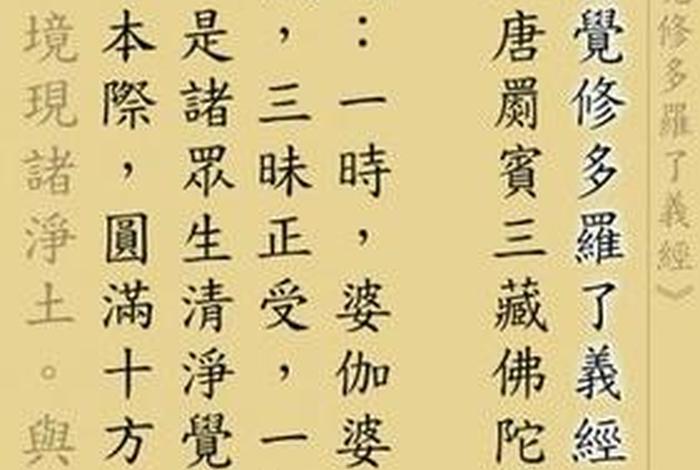 修多羅了義經》
覺修多羅了義經
唐罽賓三藏佛陀
：一時，婆伽婆
，三昧正受，一
是諸眾生清淨覺
本際，圓滿十方
境現諸淨土。與